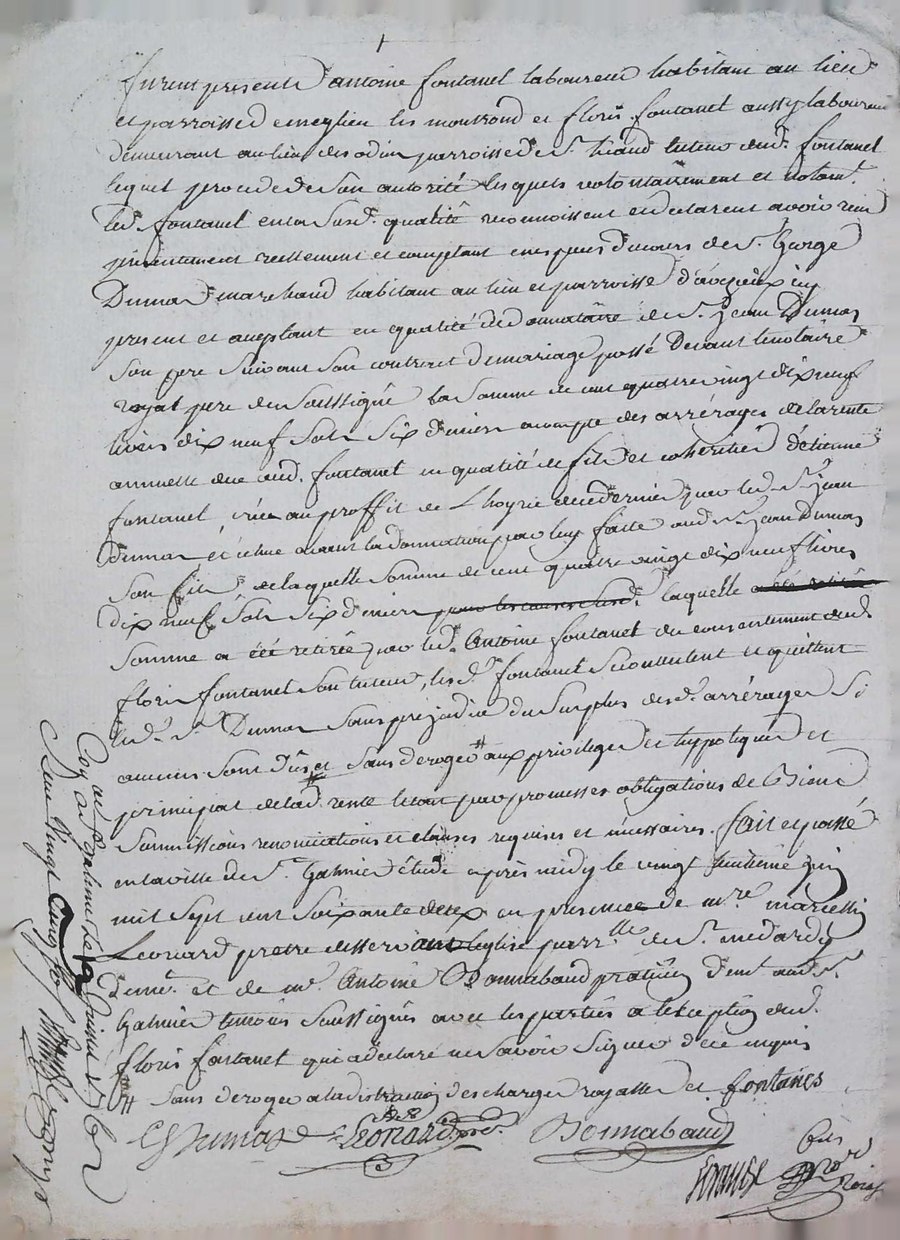 furent presents antoine fontanel laboureur habitant au lieu
et parroisse de meylieu les montrond et floris fontanel aussy laboureur
demeurant au lieu des odins parroisse de st heand tuteur dud. fontanel
lequel procede de son autorité lesquels volontairement et notamt.
led. fontanel en sa susd. qualité reconnoissent et declarent avoir reçu
presentement reellement et comptant en especes de cours de sr. George
Dumas marchand habitant au lieu et parroisse d'aveizieux icy
present et aceptant en qualité de donataire de sr. jean Dumas
son pere suivant son contract de mariage passé devant le notaire
royal pere du soussigné la somme de cent quatre vingt dix neuf
livres dix neuf sols six deniers acompte des arrérages de la rente
annuelle due aud. fontanel en qualité de fils et coheritier d'étienne
fontanel, créée au proffit de l'hoyrie de ce dernier par led. sr. jean
dumas et échue avant la donnation par luy faite aud. sr. jean Dumas
son fils, de laquelle somme de cent quatre vingt dix neuf livres
dix neuf sols six deniers pour les causes susd. laquelle a été retirée
somme a été retirée par led. Antoine fontanel du consentement dud.
floris fontanel son tuteur, lesd. fontanel se contentent et quittent
led. sr. Dumas sans prejudice du surplus desd. arrérages si
aucuns sont dûs et sans deroger # aux privileges et hypoteques et
principal de lad. rente le tout par promesses obligations de biens
soumissions renonciations et clauses requises et nécessaires. fait et passé
en la ville de st. Galmier étude après midy le vingt huitieme juin
mil sept cent soixante deux en presence de mre. marcellin
Leonard pretre desservant l'eglise parrlle. de st. medard y
demt. et de me. Antoine Bonnabaud praticien demt. aud. st.
Galmier temoins soussignés avec les parties a l'exception dud.
floris fontanel qui a declaré ne savoir signer de ce enquis
# sans deroger a la distraction des charges royalles et fontanes
G Dumas Leonard ptre. Bonnabaud
not. roial